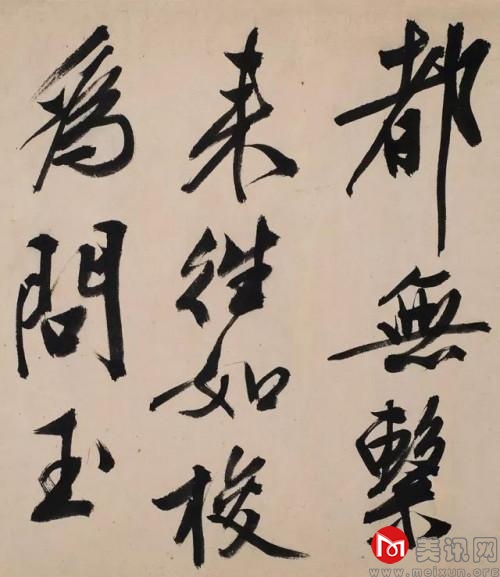 都無繫
来往如梭
為問玉
美讯网
www.meixun.org